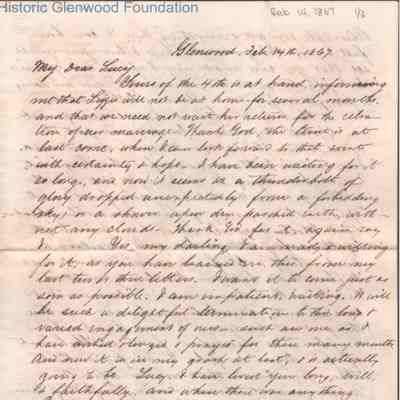 Historic Glenwood Foundation
Feb 14, 1867 1/2
Glenwood, Feb. 14th, 1867.
My Dear Lucy
Yours of the 4th is at hand, informing
me that Lizzie will not be at home for several months,
and that we need not wait her return for the celebra-
tion of our marriage. Thank God, the time is at
last come, when I can look forward to that event
with certainty & hope. I have been waiting for it
so long, and now it seems as a thunderbolt of
glory dropped unexpectedly from a forbidding
sky; or a shower upon dry, parched earth, with-
out any clouds. Thank God for it. Again say
I. Yes, my darling, I am ready & willing
for it, as you have learned ere this, from my
last two or three letters. I want it to come just as
soon as possible. I am impatient, waiting. It will
be such a delightful termination to this long &
varied engagement of ours. Such an one as I
have wished, longed & prayed for these many months.
And now it is in my grasp at last, & is actually
going to be. Lucy, I have loved you long, well,
& faithfully, and when there was anything